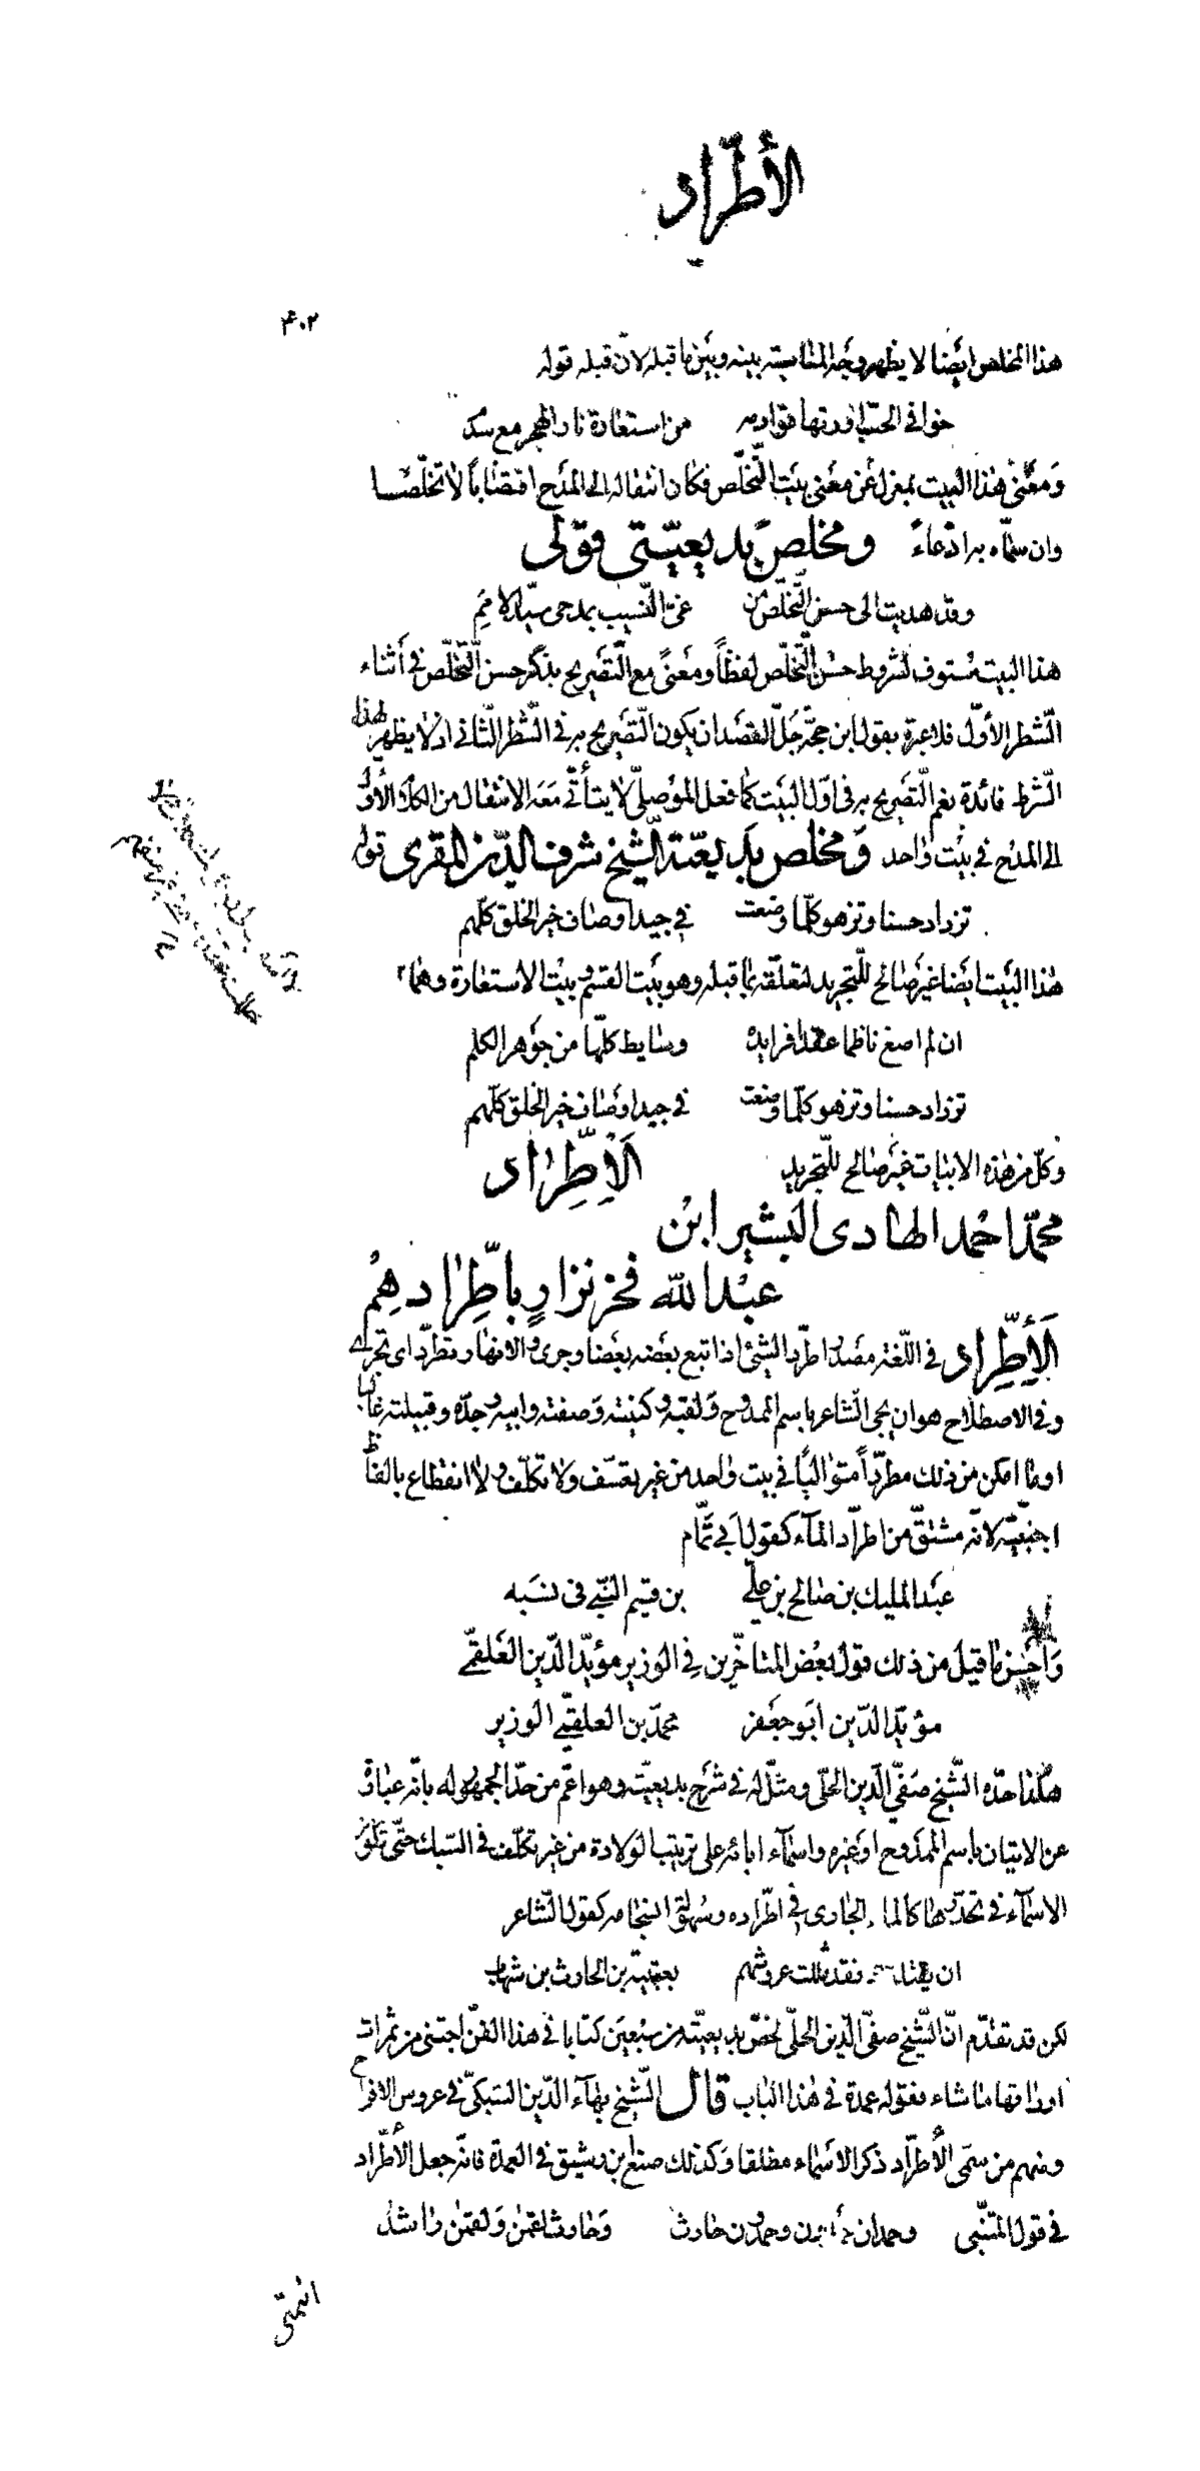 الأطّراد
۴۰۲
هذا المخلص ايضا لا يظهر وجه المناسبته بينه وبين ما قبله لانّ قبله قوله
خوافي الحبّ اورتها قوادمه من استعارة نار الهجر مع
وَمعنى هٰذا البيت بمعزل عن معنى بيت التّخلّص فكان انتقاله الى المدح اقتضاباً لا تخلّصا
وان سمّاه به ادّعاءً ومخلصُ بديعيّتى قوَلى
وقد هديت الى حسن التّخلّص من غىّ النّسيب بمدحى سيّد الامَمِ
هذا البيت مستوف لشروط حسن التّخلّص لفظاً ومعنًى مع التّصريح بذكر حسن التّخلّص في أثناء
الشّطر الأوّل فلاعبرة بقول ابن حجّة جُلّ القصد ان يكون التّصريح به في الشّطر الثّانى اذ لا يظهر لهذا
الشّرط فائدة نعم التّصريح به في اوّل البيت كما فعل الموصلىّ لا يتأتّى مَعَه الانتقال من الكلام الأوّل
الى المدح في بيْت واحد وَمخلص بديعيّة الشّيخ شرف الدّين المقرى قوله
تزداد حسنا وتزهو كلّما وضعت في جيد اوصاف خير الخلق كلّهم
هٰذا البَيت ايَضا غير صَالح للتّجريد لتعلّقه بما قبله وهو بَيت القسم وبيْت الاستعارة وهما
ان لم اصغ ناظما عقدا فرايده وسَايط كلّها من جَوهر الكلم
تزداد حسنا وتزهو كلّما وضعت في جيد اوصَاف خير الخلق كلّهم
وكلّ من هٰذه الابيات غير صَالح للتّجريد اَلاِطِّرٰاد
محمّد احْمد الهادى البَشير ابْن
عبْد اللّه فخر نزارٍ باطِّرٰادهِمْ
اَلأِطِّرٰاد في اللّغة مصدر اطّرد الشّئ اذا تبع بعَضه بعَضا وجرى والانهار تطّرد اى تجرى
وفي الاصطلاح هو ان يجى الشّاعر باسم الممدوح وَلقبه وكنيته وَصفته وابيه وجدّه وقبيلته غالبا
اوما امكن من ذلك مطّرداً متواليًا في بيت واحد من غير تعَسّف ولا تكلّف ولا انقطاع بالفاظ
اجنبيّة لانّه مشتقّ من اطّراد المآء كقول ابَي تمّام
عبَد المليك بن صٰالح بن علىّ بن قسيم النّبىّ فى نسَبه
وَاحْسن ما قيل من ذلك قول بعْض المتاخّرين في الوزير مؤيّد الدّين العَلقمىّ
مؤيّد الدّين ابَو جعَفر محمّد بن العلقمىّ الوَزير
هٰكذا حدّه الشّيخ صَفىّ الدّين الحلّى ومثّل له في شرَح بديعيّته وهو اعَمّ من حدّ الجمهور له بانّه عبٰارة
عن الاتيان باسم الممدوح او غَيره واسمآء ابائه على ترتيب الولادة من غير تكلّف في السّبك حتّى تكون
الاسمآء في تحدّرها كالمآء الجارى في اطّراده وسُهولة انسجامه كقول الشّاعر
ان يقتلوك فقد ثللت عروشهم بعتيبة بن الحارث بن شهاب
لكن قد تقدّم انّ الشّيخ صفىّ الدّين الحلّى لخصّ بديعيّته من سبْعيَن كتابا في هذا الفنّ اجتنى من ثمرات
اوراقها ما شاء فقوله عمدة في هٰذا البٰاب قال الشّيخ بهآء الدّين السّبكىّ في عروس الافراح
ومنهم من سمّى الأطّراد ذكر الاسَمٰاء مطلقا وَكذلك صنع ابن رشيق في العمدة فانّه جعل الأطّراد
في قول المتنبّى وحمدان حمدون وحمدون حٰارث وَحٰارث لقمٰن وَلقمٰن رٰاشد
انتهى